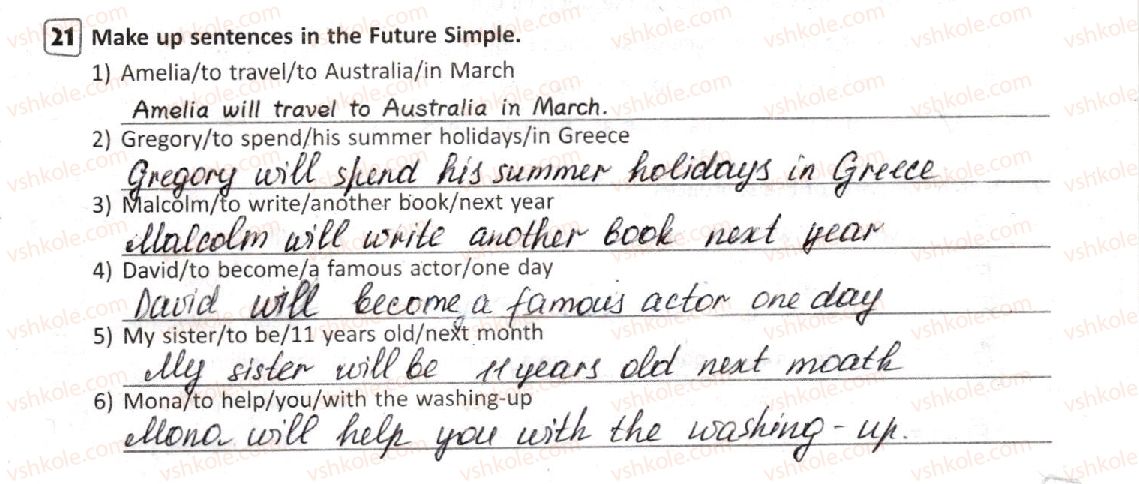 21 Make up sentences in the Future Simple.
1) Amelia/to travel/to Australia/in March
Amelia will travel to Australia in March.
2) Gregory/to spend/his summer holidays/in Greece
Gregory will spend his summer holidays in Greece
3) Malcolm/to write/another book/next year
Malcolm will write another book next year
4) David/to become/a famous actor/one day
David will become a famous actor one day
5) My sister/to be/11 years old/next month
My sister will be 11 years old next month
6) Mona/to help/you/with the washing-up
Mona will help you with the washing-up.